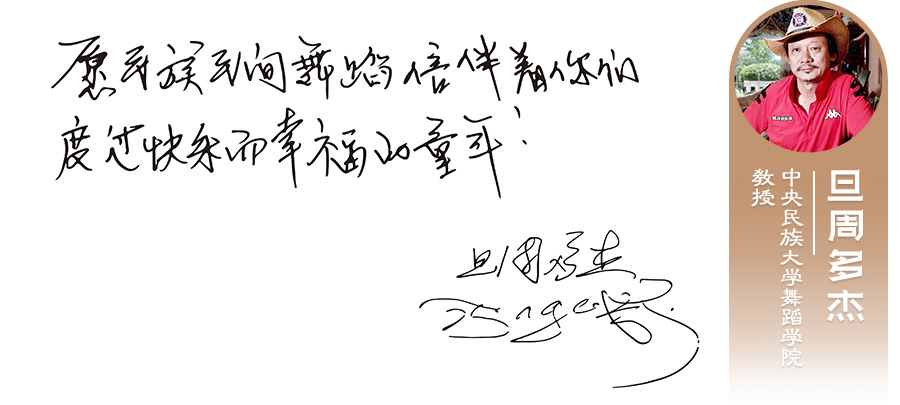 愿民族民间舞蹈倍伴着你们
度过快乐而幸福的童年！
旦周多杰
Kappa
旦周多杰
中央民族大学舞蹈学院
教授